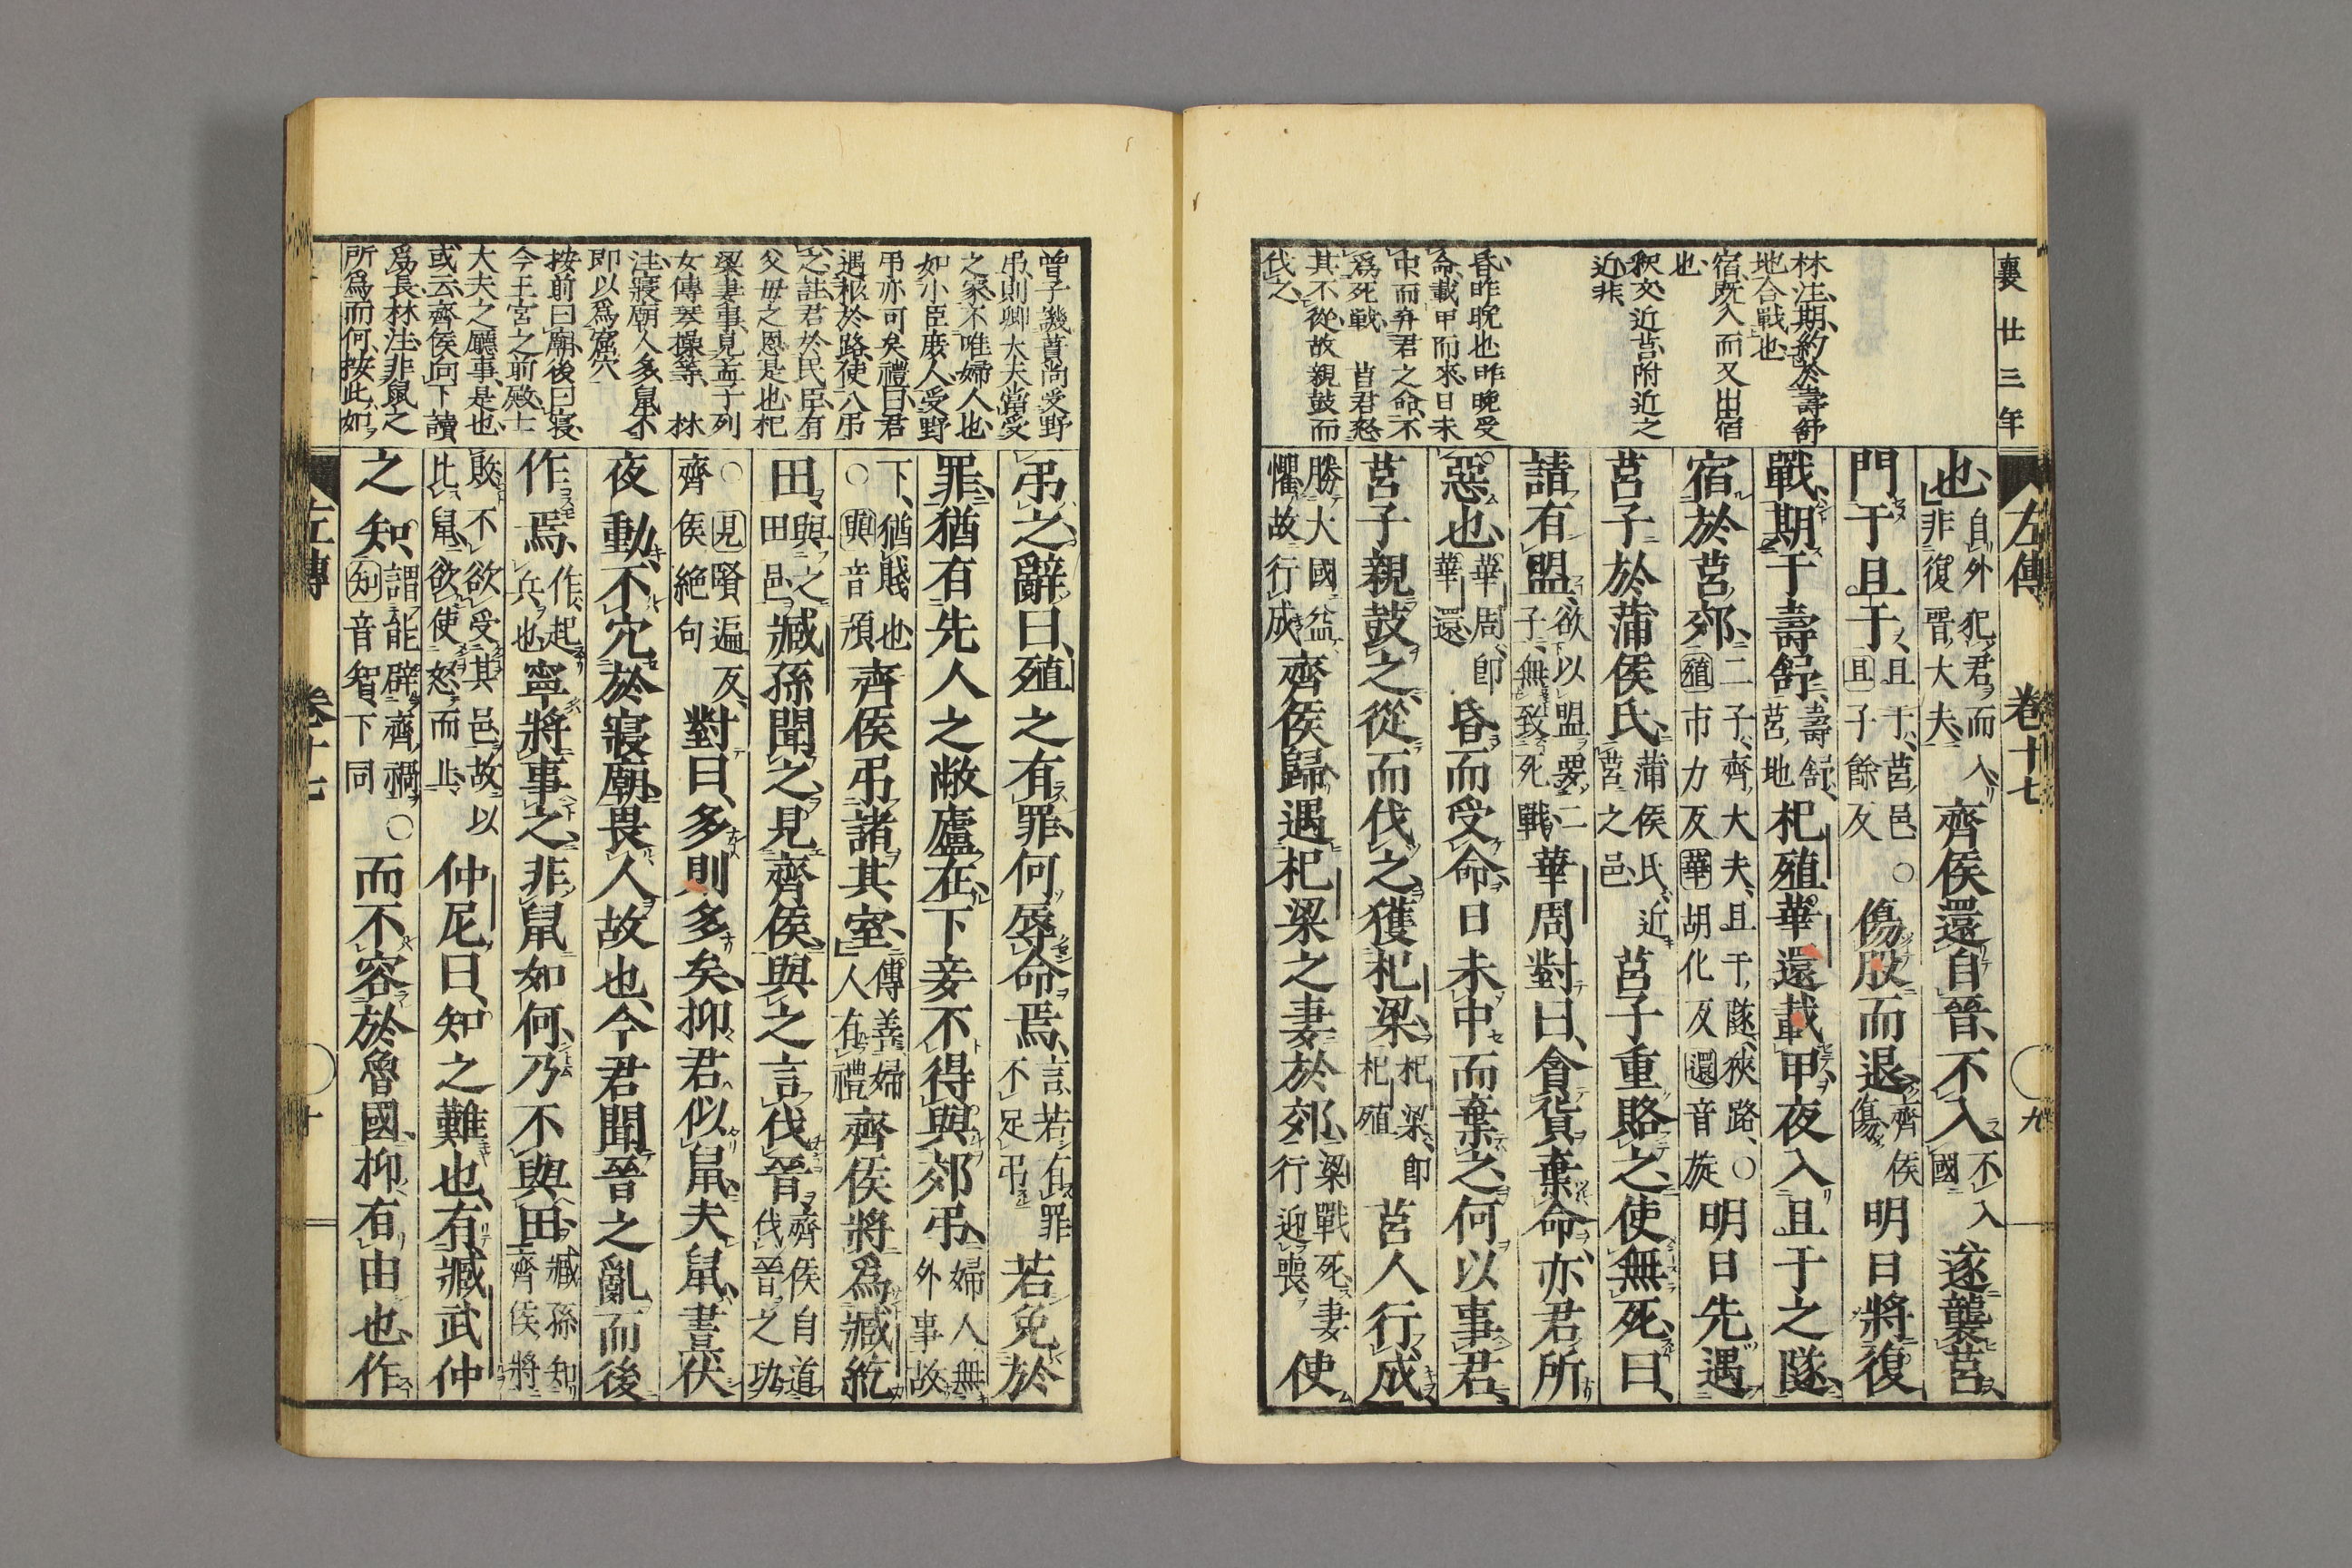 襄廿三年
左傳 卷十七 九
林注、期、約於壽舒
地合戰也
宿、既入而又出宿
也
釈文、近莒、附近之
近非
昏、昨晩也、昨晩受
命、載甲而來、日未
中、而弃君之命、不
爲死戰、 莒君怒
其不從、故親鼓而
伐之、
也、自外犯君而入非復晉大夫、齊侯還自晉、不入、不入國遂襲莒、
門于且于、且于、莒邑、○且子餘反傷股而退、齊侯傷明日將復
戰、期于壽舒、壽舒、莒地杞殖華還載甲、夜入且于之隧、
宿於莒郊、二子、齊大夫、且于隧、狹路、○殖市力反華胡化反還音旋明日先遇
莒子於蒲侯氏、蒲侯氏、近莒之邑莒子重賂之、使無死、曰、
請有盟、欲以盟要二子、無致死戰、華周對曰、貪貨棄命、亦君所
惡也、華周、即華還、昏而受命、日未中而棄之、何以事君、
莒子親鼓之、從而伐之、獲杞梁、杞梁、即杞殖莒人行成、
勝大國益懼、故行成齊侯歸、遇杞梁之妻於郊、梁戰死、妻行迎喪使
曾子譏蕢尚受野
弔、則卿大夫當受
之家、不唯婦人也、
如小臣庻人、受野
弔亦可矣、禮曰、君
遇柩於路、使人弔
之、註、君於民臣、有
父母之恩、是也、杞
梁妻事、見孟子列
女傳琴操等、 林
注、寢廟人多、鼠不
即以爲窟穴
按、前曰廟、後曰寢、
今王宮之前殿、士
大夫之廳事、是也、
或云、齊侯向下讀
爲長、林注、非鼠之
所爲而何、按此如
弔之、辭曰、殖之有罪、何辱命焉、言若有罪不足弔若免於
罪、猶有先人之敝廬在、下妾不得與郊弔、婦人無外事故
下、猶賤也○與音預齊侯弔諸其室、傳善婦人有禮齊侯將爲臧紇
田、與之田邑臧孫聞之、見齊侯、與之言伐晉、齊侯自道伐晉之功
○見賢遍反、齊侯絶句對曰、多則多矣、抑君似鼠、夫鼠、晝伏
夜動、不穴於寢廟、畏人故也、今君聞晉之亂而後
作焉、作、起兵也寧將事之、非鼠如何、乃不與田、臧孫知齊侯將
敗、不欲受其邑、故以比鼠、欲使怒而止、仲尼曰、知之難也、有臧武仲
之知、謂能辟齊禍、○知音智、下同而不容於魯國、抑有由也、作
左傳 卷十七 十